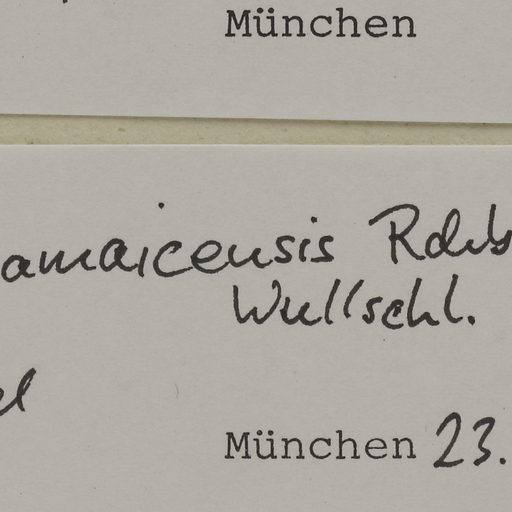 München
amaicensis
Wullschl.
el
München 23.